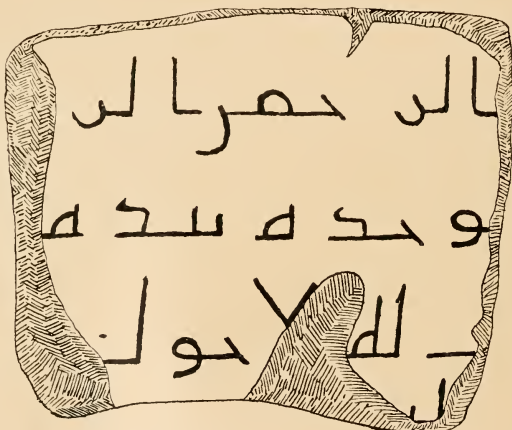 الرحمن الر
وحده بيده
لله لا حول